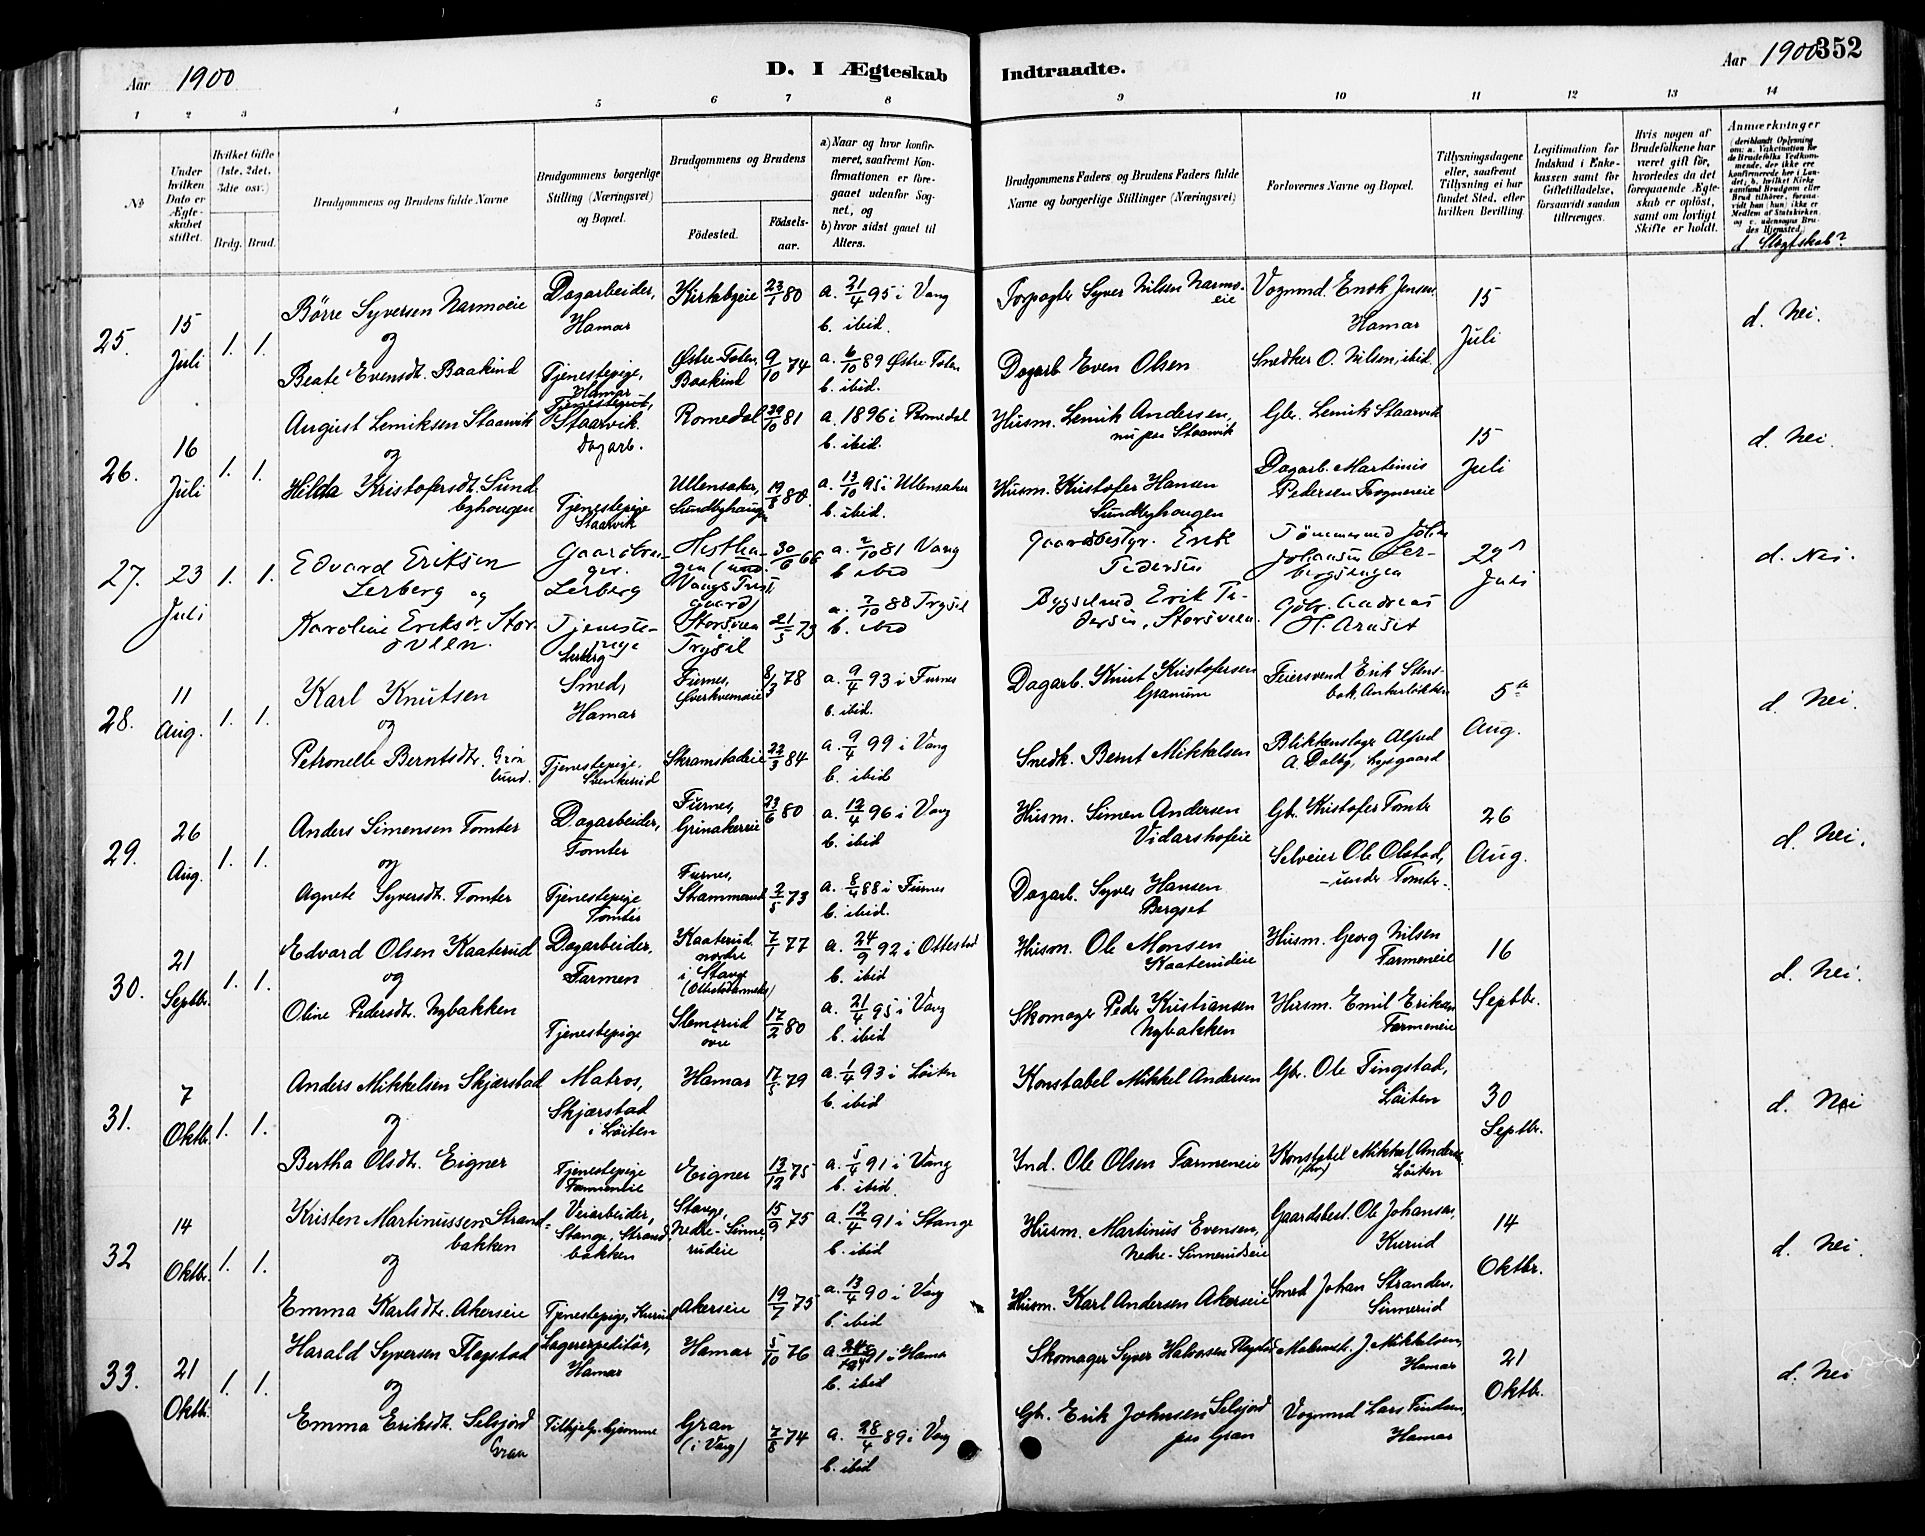 Aar 1900
D. I Ægteskab Indtraadte.
Aar 1900 352
1 2 3 4 5 6 7 8 9 10 11 12 13 14
No
Under hvilken Dato er Ægteskabet stiftet.
Hvilket Gifte (1ste, 2det, 3die osv.)
Brdg. Brud.
Brudgommens og Brudens fulde Navne
Brudgommens borgerlige Stilling (Næringsvei) og Bopæl.
Brudgommens og Brudens
Fødested.
Fødselsaar.
a) Naar og hvor konfirmeret, saafremt Konfirmationen er foregaaet udenfor Sognet, og
b) hvor sidst gaaet til Alters.
Brudgommens Faders og Brudens Faders fulde Navne og borgerlige Stillinger (Næringsvei)
Forlovernes Navne og Bopæl.
Tillysningsdagene eller, saafremt Tillysning ei har fundet Sted, efter hvilken Bevilling.
Legitimation for Indskud i Enkekassen samt for Giftetilladelse, forsaavidt saadan tiltrænges.
Hvis nogen af Brudefolkene har været gift før, hvorledes da det foregaaende Ægteskab er opløst, samt om lovligt Skifte er holdt.
Anmærkninger (deriblandt Oplysning om: a. Vakcination for de Brudefolks Vedkommende, der ikke ere konfirmerede her i Landet; b. hvilket Kirkesamfund Brudgom eller Brud tilhører, forsaavidt han (hun) ikke er Medlem af Statskirken, og c. udensogns Brudes Hjemsted.)
d. Slægtskab?
25. 15 Juli 1. 1.
Børre Syversen Narmoeie
og
Beate Evensdt. Baakind
Dagarbeider,
Hamar
Tjenestepige,
Hamar
Kirkebyeie 23/1 80
Østre-Toten,
Baakind 9/10 74
a. 21/4 95 i Vang
b. ibid.
a. 6/10 89 Østre Toten
b. ibid.
Forpagter Syver Nilsen Narmoeie
Dagarb. Even Olsen
Vognmd. Enok Jensen,
Hamar
Snedker O. Nilsen, ibid.
15 Juli
d. Nei.
26. 16 Juli 1. 1.
August Lemiksen Staarvik
og
Hilda Kristofersdt. Sundbyhougen
Staarvik
Dagarb.
Tjenestepige
Staarvik
Romedal 29/10 81
Ullensaker,
Sundbyhaugen 19/8 80.
a. 1896 i Romedal
b. ibid.
a. 13/10 95 i Ullensaker
b. ibid.
Husm. Lemik Andersen,
nu paa Staarvik
Husm. Kristofer Hansen
Sundbyhougen
Gbr. Lemik Staarvik
Dagarb. Martinus
Pedersen Frognereie
15 Juli
d. Nei.
27. 23 Juli 1. 1.
Edvard Eriksen
Lerberg og
Karoline Eriksdr. Storsveen.
Gaardbruger.
Lerberg
Tjenestepige
Lerberg
Hesthagen (und.
Vangs Prestgaard) 30/6 66
Storsveen
Trysil 21/5 73
a. 2/10 81 Vang
b. ibid
a. 7/10 88 Trysil
b. ibid
Gaardbestyr. Erik
Pedersen
Bygselmd Erik Pedersen, Storsveen.
Tømmermd John
Johansen Lerbergsengen
Gbr. Andreas
H. Arnset
22de Juli
d. Nei.
28. 11 Aug. 1. 1.
Karl Knutsen
og
Petronelle Berntsdtr. Grønlund.
Smed,
Hamar
Tjenestepige.
Stenkerud
Furnes,
Øverkvemseie 8/3 78
Skramstadeie 22/3 84
a. 9/4 93 i Furnes
b. ibid.
a. 9/4 99 i Vang
b. ibid
Dagarb. Knut Kristofersen
Granum
Smedk. Bernt Mikkelsen
Feiersvend Erik Stensbak, Ankerløkken
Blikkenslager Alfred
A. Dalby, Lysgaard
5te Aug.
d. Nei.
29. 26 Aug. 1. 1.
Anders Simensen Tomter
og
Agnete Syversdt. Tomter
Dagarbeider,
Tomter
Tjenestepige
Tomter
Furnes,
Grinakereie 23/6 80
Furnes,
Strammerud 2/5 73
a. 12/4 96 i Vang
b. ibid
a. 8/4 88 i Furnes
b. ibid.
Husm. Simen Andersen
Vidarshofeie
Dagarb. Syver Hansen
Bergset
Gb. Kristofer Tomter
Selveier Ole Olstad,
under Tomter.
26 Aug.
d. Nei.
30. 21 Septbr. 1. 1.
Edvard Olsen Kaaterud
og
Oline Pedersdt. Nybakken
Dagarbeider,
Farmen
Tjenestepige
Kaaterud
nordre
i Stange 7/1 77
Stemsrud
øvre 17/2 80
a. 24/9 92 i Ottestad
b. ibid
a. 21/4 95 i Vang
b. ibid
Husm. Ole Monsen
Kaaterudeie
Skomager Peder Kristiansen
Nybakken
Husm. Georg Nilsen
Farmeneie
Husm. Emil Eriksen
Farmeneie
16 Septbr.
d. Nei.
31. 7 Oktbr. 1. 1.
Anders Mikkelsen Skjærstad
og
Bertha Olsdtr. Eigner
Matros,
Skjærstad
i Løiten
Tjenestepige
Farmeneie
Hamar 17/5 79
Eigner 13/12 75
a. 1/4 93 i Løiten
b. ibid
a. 5/4 91 i Vang
b. ibid.
Konstabel Mikkel Andersen
Ind. Ole Olsen Farmeneie
Gbr. Ole Tingstad,
Løiten
Konstabel Mikkel Andersen
Løiten
30 Septbr.
d. Nei
32 14 Oktbr. 1. 1.
Kristen Martinussen Strandbakken
og
Emma Karlsdtr. Akerseie
Veiarbeider,
Stange, Strandbakken
Tjenestepige, Kurud
Stange,
Nedre-Sinnerudeie 15/9 75
Akerseie 19/7 75
a. 12/4 91 i Stange
b. ibid
a. 13/4 90 i Vang
b. ibid
Husm. Martinus Evensen,
Nedre-Sinnerudeie
Husm. Karl Andersen Akerseie
Gaardsbest. Ole Johansen,
Kurud
Smed Johan Stranden,
Sinnerud
14 Oktbr.
d. Nei.
33. 21 Oktbr. 1. 1.
Harald Syversen Flagstad
og
Emma Eriksdt. Selsjord
Gran
Lagerexpeditør,
Hamar
Tilhjelp hjemme
Hamar 5/10 76
Gran
(i Vang) 7/8 74
a. 91 i Hamar
b. ibid
a. 28/4 89 i Vang
b. ibid
Skomager Syver Halvorsen Flagstad
Gb. Erik Johnsen Selsjord
paa Gran
Malermst. J. Mikkelsen,
Hamar
Vognmd Lars Findsen,
Hamar
21 Oktbr.
d. Nei